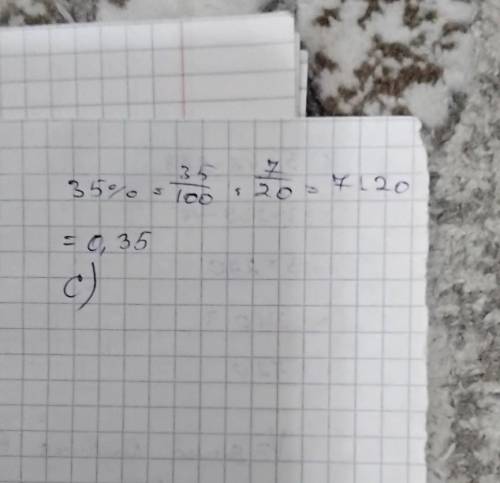 35% = 35/100 = 7/20 = 7:20
= 0,35
c)